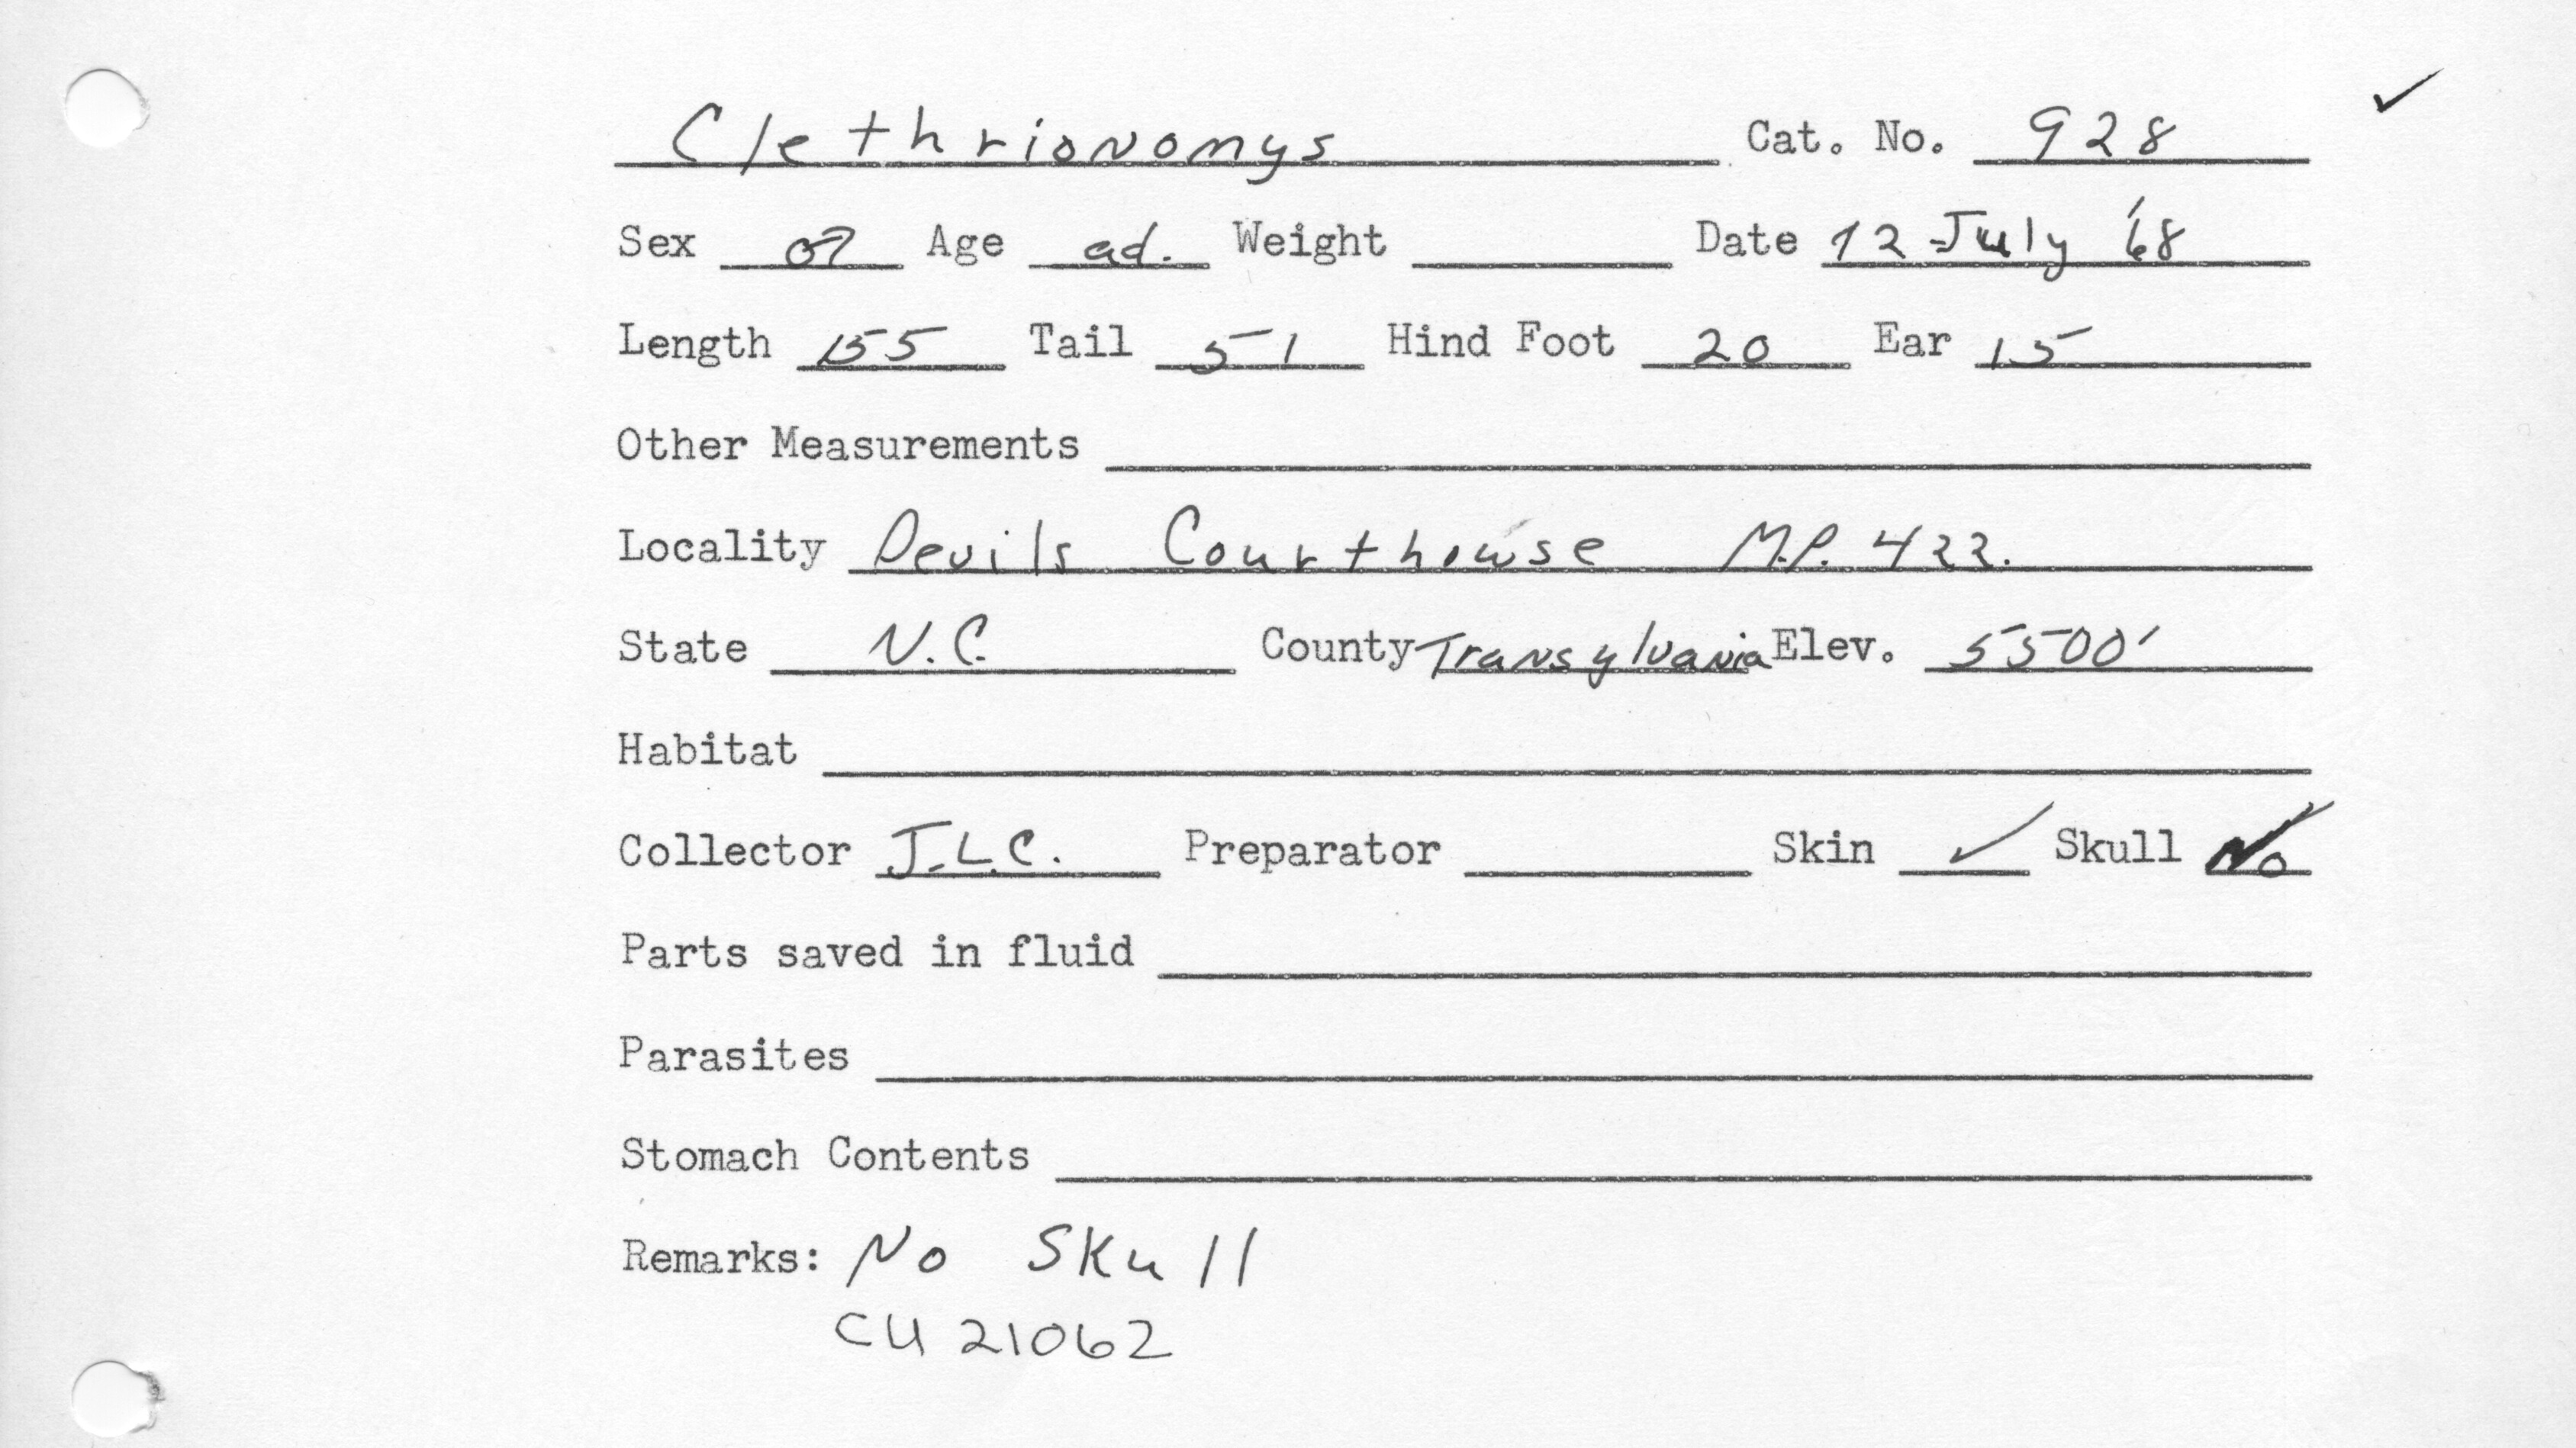 Clethrionomys Cat. No. 928 ✓
Sex ♂ Age ad. Weight Date 12 July '68
Length 155 Tail 51 Hind Foot 20 Ear 15
Other Measurements
Locality Devils Courthouse M.P. 422.
State N.C. County Transylvania Elev. 5500'
Habitat
Collector J.L.C. Preparator Skin ✓ Skull No
Parts saved in fluid
Parasites
Stomach Contents
Remarks: No Skull
CU 21062